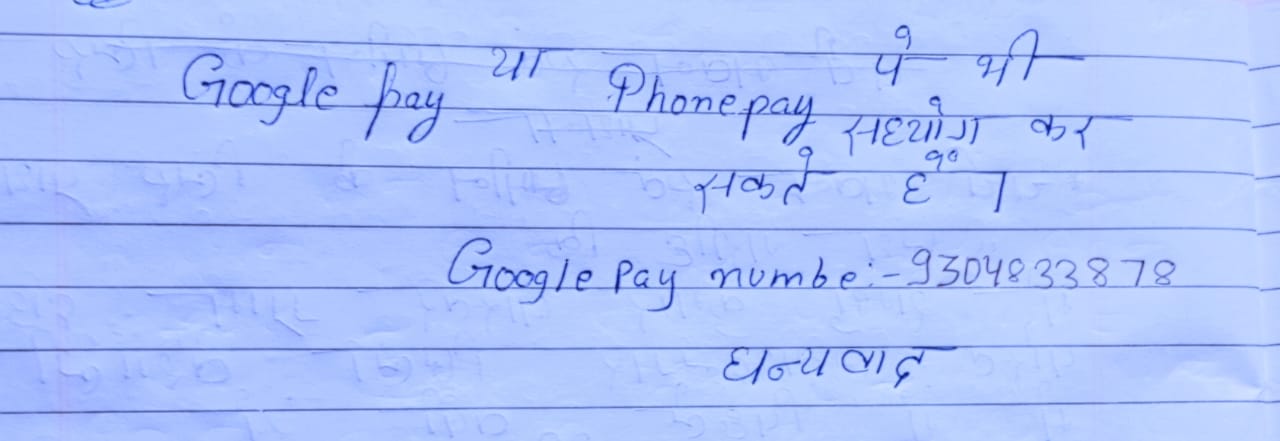 Google pay या Phonepay पे भी
सहयोग कर
सकते हैं।
Google Pay numbe:-9304833878
धन्यवाद